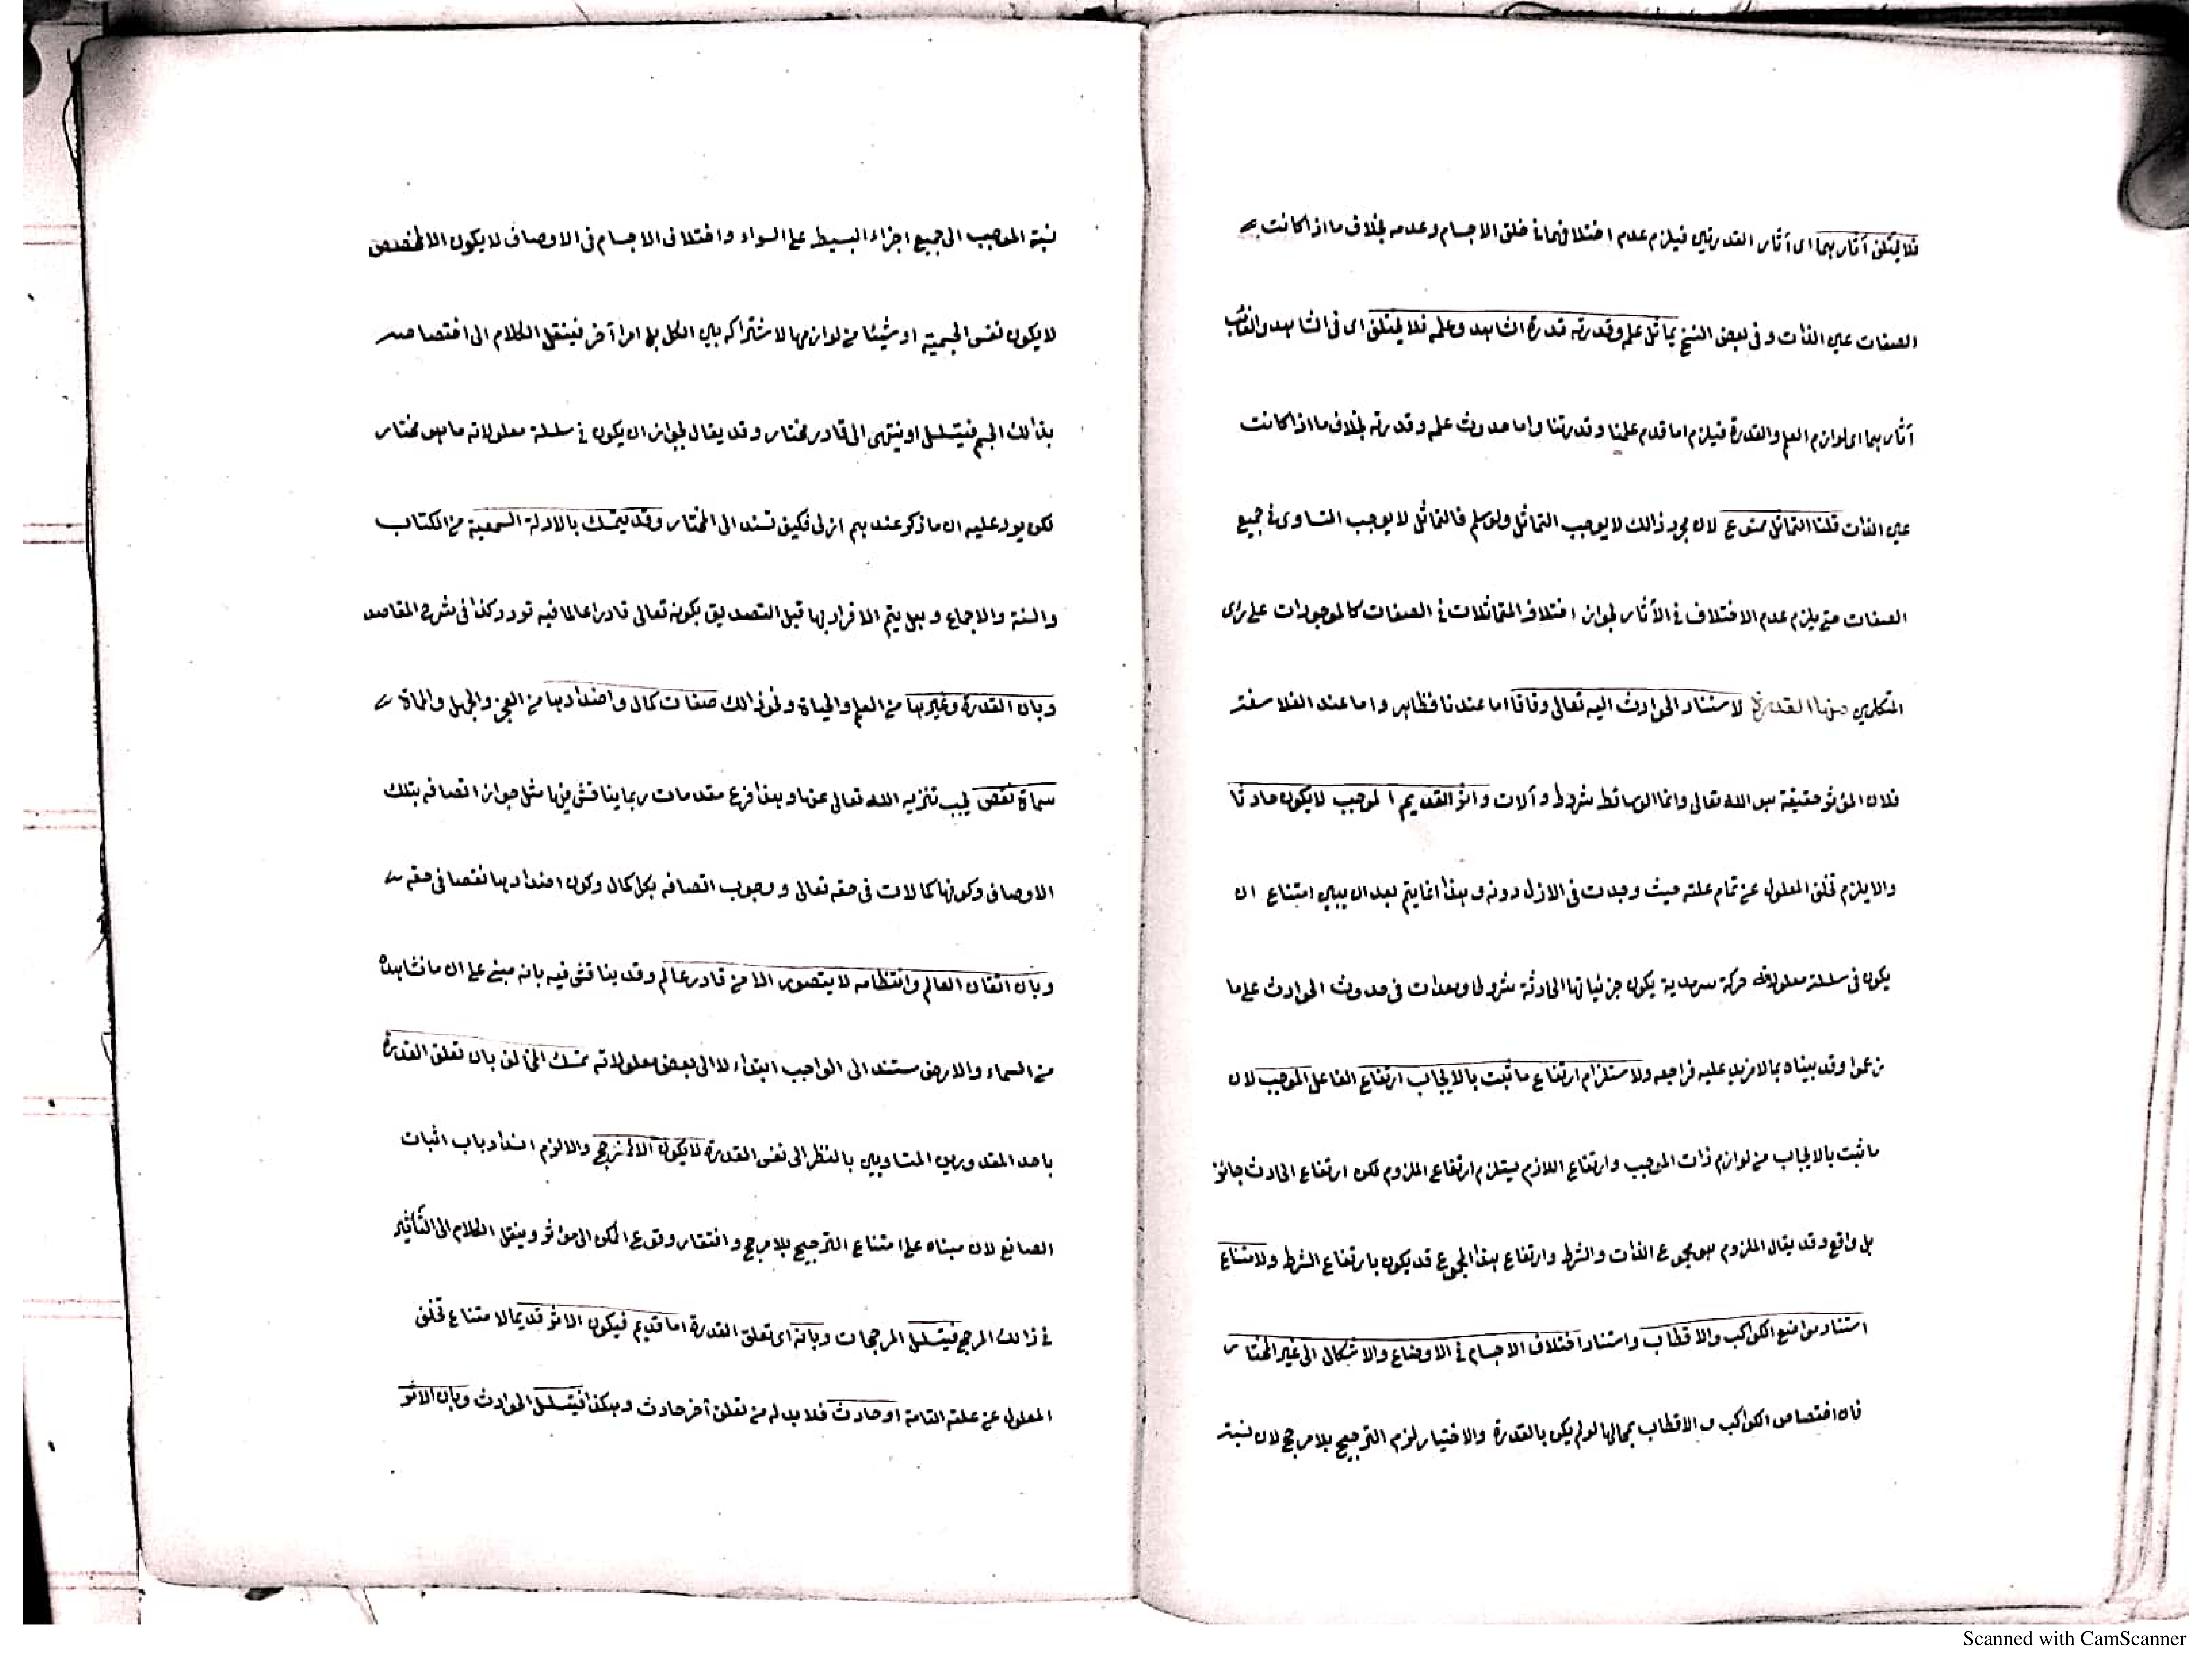 فلا يختلف آثارهما اى آثار القدرتين فيلزم عدم اختلافهما فى خلق الاجسام وعدمه بخلاف ما اذا كانت
الصفات عين الذات و فى بعض النسخ يماثل علمه وقدرته قدرة الشاهد وعلمه فلا يختلف اى فى الشاهد والغائب
آثارهما اى لوازم العلم والقدرة فيلزم اما قدم علمنا وقدرتنا واما حدوث علمه وقدرته بخلاف ما اذا كانت
عين الذات قلنا التماثل ممنوع لان مجرد ذالك لا يوجب التماثل ولو سلم فالتماثل لا يوجب التساوى فى جميع
الصفات حتى يلزم عدم الاختلاف فى الآثار لجواز اختلاف المتماثلات فى الصفات كالموجودات على راى
المتكلمين منها القدرة لاستناد الحوادث اليه تعالى وفاقا اما عندنا فظاهر واما عند الفلاسفة
فلان المؤثر حقيقة هو الله تعالى وانما الوسائط شروط و آلات واثر القديم الموجب لا يكون حادثا
والا يلزم تخلف المعلول عن تمام علته حيث وجدت فى الازل دونه وهذا انما يتم بعد ان يبين امتناع ان
يكون فى سلسلة معلولاته حركة سرمدية يكون جزئياتها الحادثة شروطا ومعدات فى حدوث الحوادث على ما
زعموا وقد بيناه بما لا مزيد عليه فراجعه ولاستلزام ارتفاع ما ثبت بالايجاب ارتفاع الفاعل الموجب لان
ما ثبت بالايجاب من لوازم ذات الموجب وارتفاع اللازم يستلزم ارتفاع الملزوم لكن ارتفاع الحادث جائز
بل واقع وقد يقال الملزوم هو مجموع الذات والشرط وارتفاع هذا المجموع قد يكون بارتفاع الشرط ولامتناع
استناد مواضع الكواكب والاقطاب واستناد اختلاف الاجسام فى الاوضاع والاشكال الى غير المختار
فان اختصاص الكواكب و الاقطاب بمحالها لو لم يكن بالقدرة والاختيار لزم الترجيح بلا مرجح لان نسبة
نسبة الموجب الى جميع اجزاء البسيط على السواء واختلاف الاجسام فى الاوصاف لا يكون الا لمخصص
لا يكون نفس الجسمية او شيئا من لوازمها لاشتراكه بين الكل بل امرا آخر فينقل الكلام الى اختصاصه
بذالك الجسم فيتسلسل او ينتهى الى قادر مختار وقد يقال لجواز ان يكون فى سلسلة معلولاته ما هو مختار
لكن يرد عليه ان ما ذكر عندهم ازلى فكيف تسند الى المختار وقد يتمسك بالادلة السمعية من الكتاب
والسنة والاجماع وهل يتم الاقرار بها قبل التصديق بكونه تعالى قادرا عالما فيه تردد كذا فى شرح المقاصد
وبان القدرة وغيرها من العلم والحياة ونحو ذالك صفات كمال واضدادها من العجز والجهل والمماة
سماة نقص يجب تنزيه الله تعالى عنها وهذا فرع مقدمات ربما يناقش فيها مثل جواز اتصافه بتلك
الاوصاف وكونها كمالات فى حقه تعالى و وجوب اتصافه بكل كمال وكون اضدادها نقصا فى حقه
وبان اتقان العالم وانتظامه لا يتصور الا من قادر عالم وقد يناقش فيه بانه مبنى على ان ما نشاهده
من السماء والارض مستند الى الواجب ابتداء لا الى بعض معلولاته تمسك المخالف بان تعلق القدرة
باحد المقدورين المتساويين بالنظر الى نفس القدرة لا يكون الا لمرجح والا لزم انسداد باب اثبات
الصانع لان مبناه على امتناع الترجيح بلا مرجح وافتقار وقوع الممكن الى مؤثر وينقل الكلام الى التأثير
فى ذالك المرجح فيتسلسل المرجحات وبانه اى تعلق القدرة اما قديم فيكون الاثر قديما لامتناع تخلف
المعلول عن علته التامة او حادث فلا بد له من تعلق آخر حادث وهكذا فيتسلسل الحوادث وبان الاثر
Scanned with CamScanner